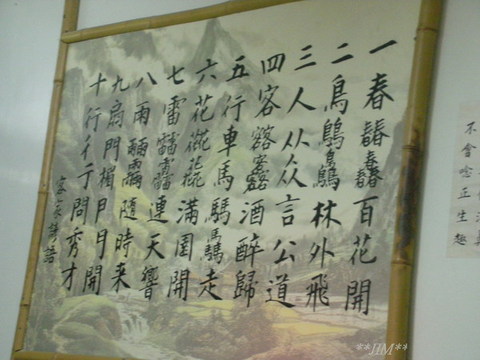 一春百花開
二鳥林外飛
三人从众言公道
四客酒醉歸
五行車馬驫走
六花滿園開
七雷連天響
八雨隨時来
九扇門月開
十行彳亍問秀才
客家
不會唸正生趣
**JIM**